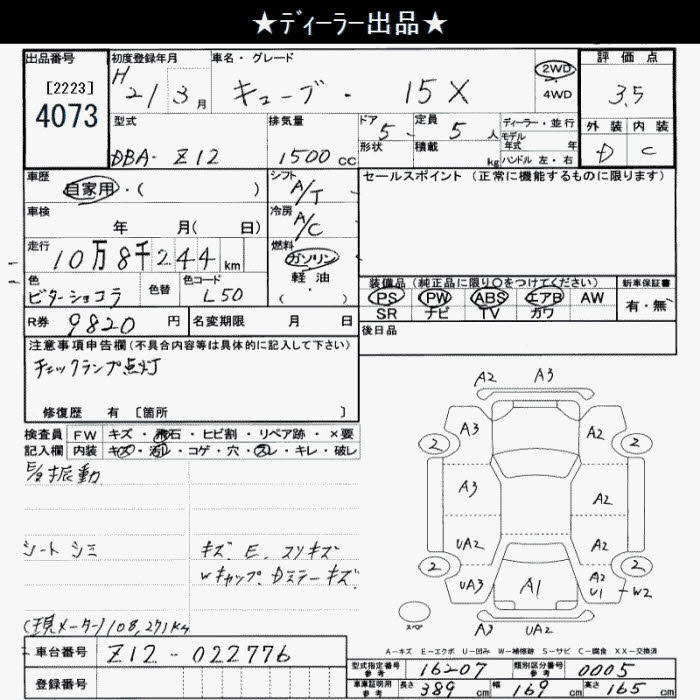 ★ディーラー出品★
出品番号 初度登録年月 車名・グレード 評価点
[2223] H21/3月 キューブ・ 15X 2WD 3.5
4073 4WD
外装 内装
型式 排気量 ドア 5 定員 5人 ディーラー・並行 D C
モデル
形状 積載 年式 年
DBA-Z12 1500cc kg ハンドル 左・右
車歴 シフト セールスポイント(正常に機能するものに限ります)
自家用・( ) A/T
車検 冷房
年 月( 日) A/C
走行 燃料
10万8千244km ガソリン
色 色替 色コード 軽油 装備品(純正品に限り○をつけてください) 新車保証書
ビターショコラ L50 ・( ) PS PW ABS エアB AW 有・無
SR ナビ TV カワ
R券 9820円 名変期限 月 日 後日品
注意事項申告欄(不具合内容等は具体的に記入して下さい)
チェックランプ点灯
修復歴 有 [箇所 ]
検査員 FW キズ・飛石・ヒビ割・リペア跡・×要
記入欄 内装 キズ・汚レ・コゲ・穴・スレ・キレ・破レ
E/g振動
シートシミ キズ、E、スリキズ
Wキャップ、Dステーキズ
(現メーター)108,271km
A2 A3
A3 A2
2 2
A3 A2
UA2 A2
2 2
UA3 A1 A2
U1 W2
スペア A3 UA2
A-キズ E-エクボ U-凹み W-補修跡 S-サビ C-腐食 XX-交換済
車台番号 Z12-022776
型式指定番号 参考 16207 類別区分番号 参考 0005
登録番号
車庫証明用 参考 長さ 389cm 幅 169cm 高さ 165cm